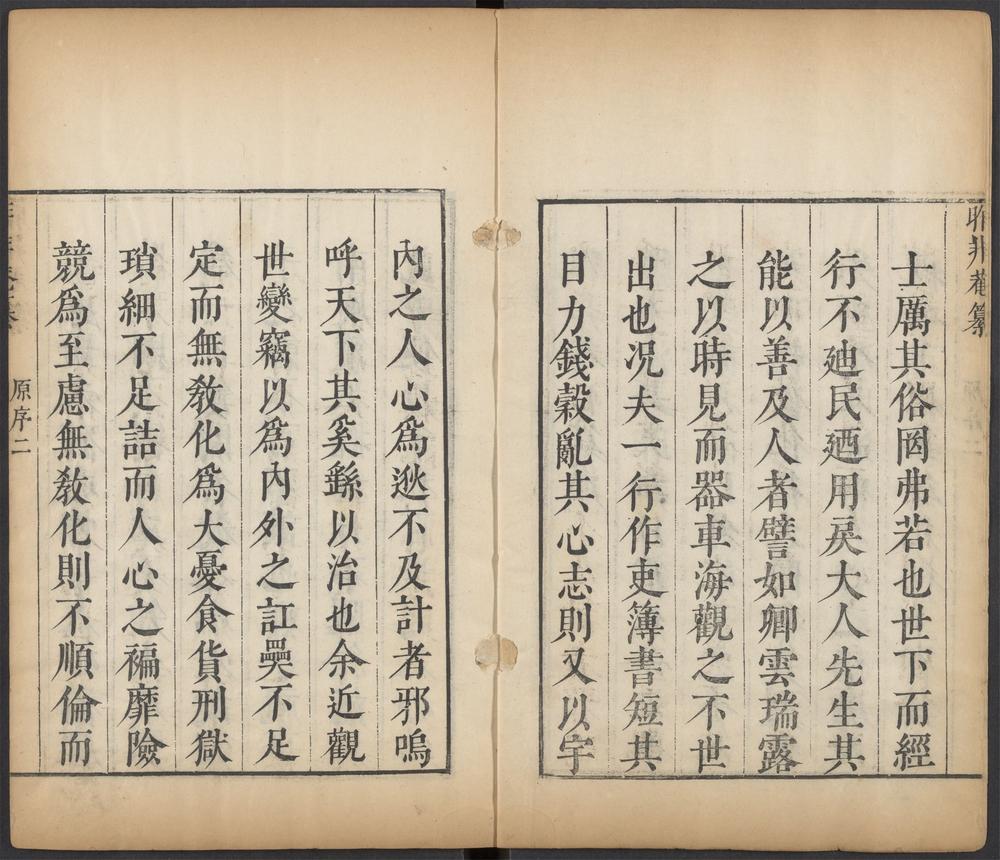 昨非菴纂
士厲其俗罔弗若也世下而經
行不廸民廼用戾大人先生其
能以善及人者譬如卿雲瑞露
之以時見而器車海觀之不世
出也况夫一行作吏簿書短其
目力錢穀亂其心志則又以宇
內之人心爲逖不及計者邪嗚
呼天下其奚繇以治也余近觀
世變竊以爲內外之訌㒍不足
定而無敎化爲大憂食貨刑獄
瑣細不足詰而人心之褊靡險
競爲至慮無敎化則不順倫而
原序二